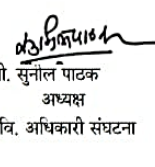 . सुनील पाठक
अध्यक्ष
वि. अधिकारी संघटना